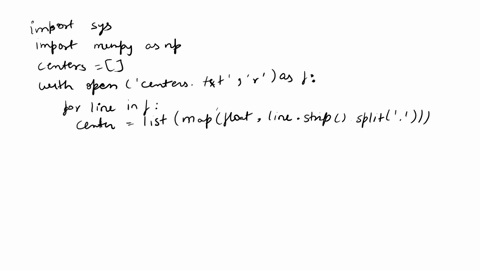 import sys
import numpy as np
centers = []
with open ('centers. txt', 'r') as f:
for line in f:
center = list (map(float, line.strip() split('.')))